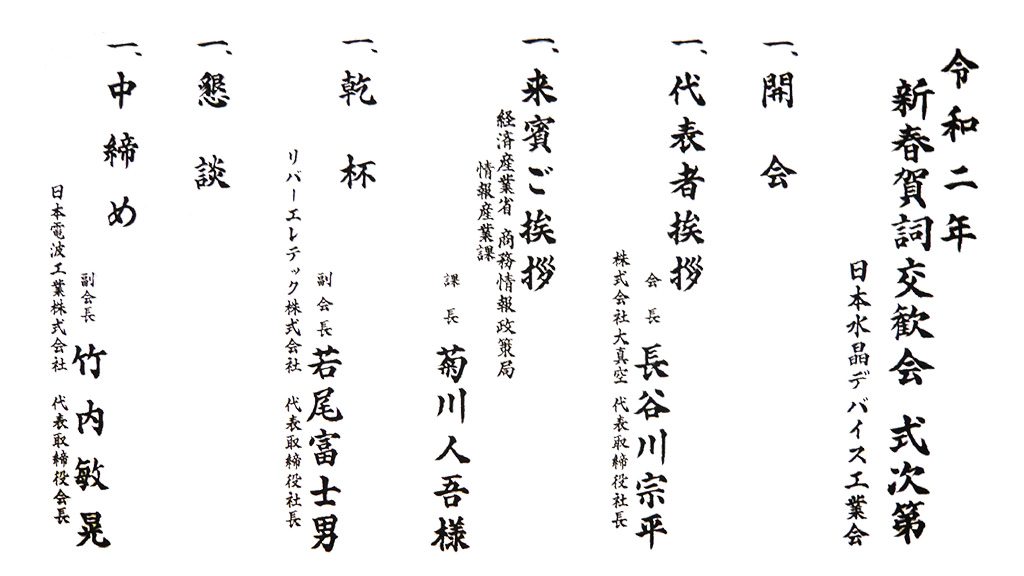 令和二年
新春賀詞交歓会 式次第
日本水晶デバイス工業会
一、開会
一、代表者挨拶
会長 長谷川宗平
株式会社大真空 代表取締役社長
一、来賓ご挨拶
経済産業省 商務情報政策局
情報産業課
課長 菊川人吾様
一、乾杯
副会長 若尾富士男
リバーエレテック株式会社 代表取締役社長
一、懇談
一、中締め
副会長 竹内敏晃
日本電波工業株式会社 代表取締役会長